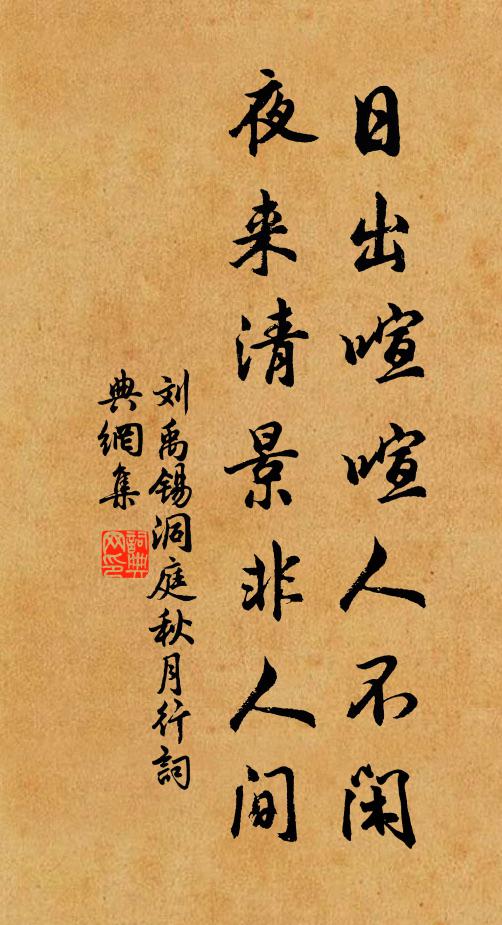 日出喧喧人不闲
夜来清景非人间
刘禹锡洞庭秋月行詞
典網集
詞典网印